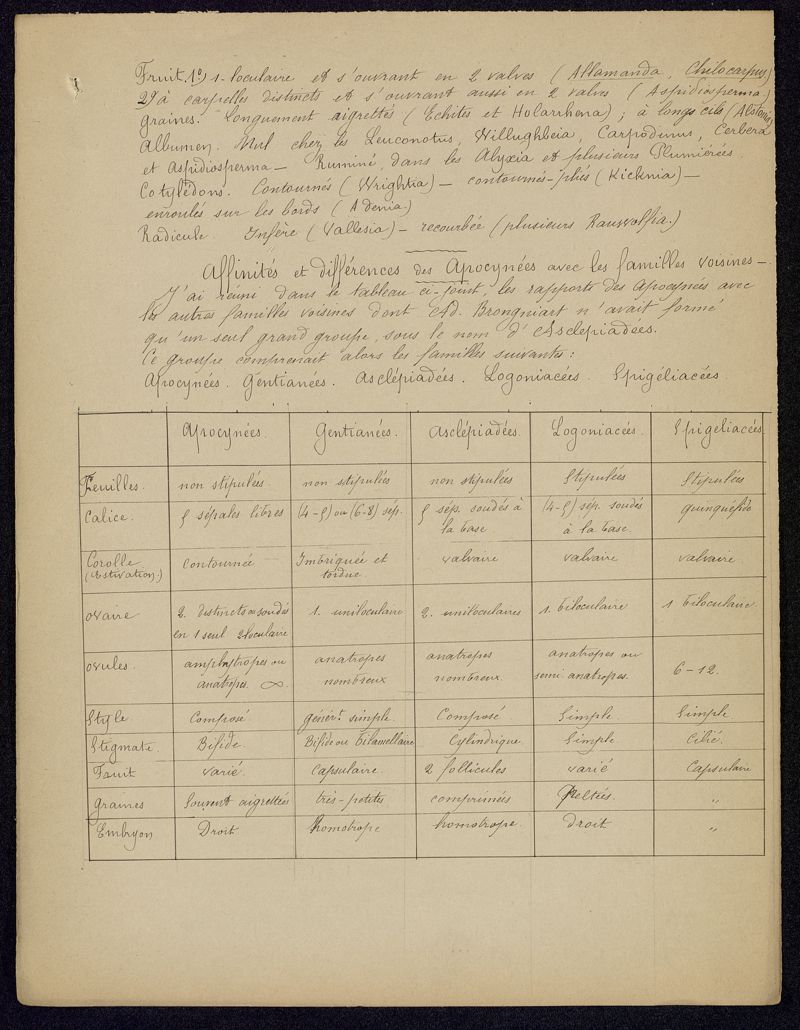 Fruit. 1º) 1-loculaire et s'ouvrant en 2 valves (Allamanda, Chilocarpus)
2º) à carpelles distincts et s'ouvrant aussi en 2 valves (Aspidiosperma)
graines. Longuement aigrettés (Echites et Holarrhena) ; à longs cils (Alstonia)
Albumen. Nul chez les Leuconotus, Willughbeia, Carpodinus, Cerbera
et Aspidiosperma — Ruminé, dans les Alyxia et plusieurs Plumiérées.
Cotylédons. Contournés (Wrightia) — contournés-pliés (Kicknia) —
enroulés sur les bords (Adenia)
Radicule. Infère (Vallesia) — recourbée (plusieurs Rauwolfia.)
Affinités et différences des Apocynées avec les familles voisines —
J'ai réuni dans le tableau ci-joint, les rapports des Apocynées avec
les autres familles voisines dont Ad. Brongniart n'avait formé
qu'un seul grand groupe, sous le nom d'Asclépiadées.
Ce groupe comprenait alors les familles suivantes :
Apocynées. Gentianées. Asclépiadées. Logoniacées. Spigéliacées.
Apocynées. Gentianées. Asclépiadées. Logoniacées. Spigéliacées
Feuilles. non stipulées. non stipulées. non stipulées Stipulées Stipulées
Calice. 5 sépales libres (4-5) ou (6-8) sép. 5 sép. soudés à la base (4-5) sép. soudés à la base. quinquéfide
Corolle (Estivation.) contournée Imbriquée et tordue valvaire valvaire valvaire
ovaire 2. distincts ou soudés en 1 seul 2loculaire 1. uniloculaire 2. uniloculaires 1. biloculaire 1 biloculaire
ovules. amphitropes ou anatropes. ∞ anatropes nombreux anatropes nombreux. anatropes ou semi-anatropes. 6-12.
Style Composé génért simple. Composé Simple. Simple
Stigmate. Bifide. Bifide ou bilamellaire Cylindrique. Simple Cilié.
Fruit varié Capsulaire. 2 follicules varié Capsulaire
graines Souvent aigrettées très-petites comprimées Peltées. "
Embryon Droit homotrope homotrope. droit "